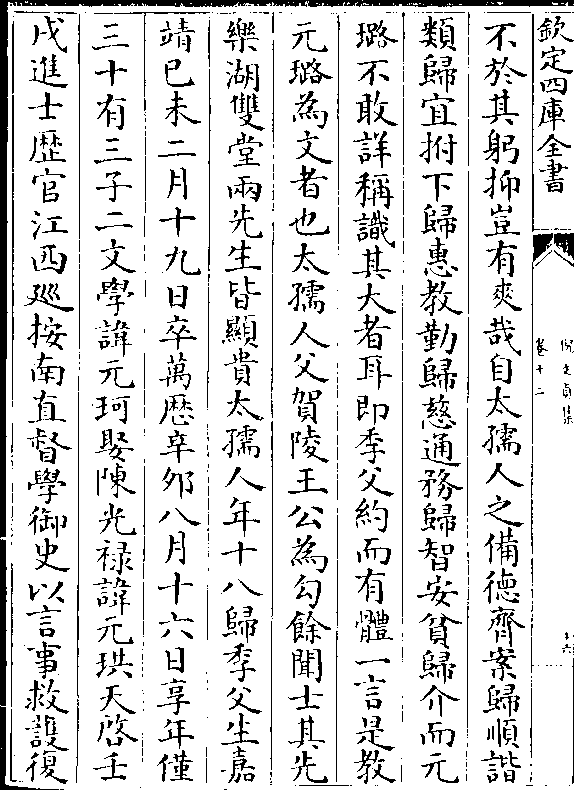 欽定四庫全書
倪文貞集
卷十二
十六
不於其躬抑豈有爽哉自太孺人之備德齊案歸順諧
類歸宜拊下歸惠教勤歸慈通務歸智安貧歸介而元
璐不敢詳稱識其大者耳即季父約而有體一言是教
元璐為文者也太孺人父賀陵王公為勾餘聞士其先
樂湖雙堂兩先生皆顯貴太孺人年十八歸季父生嘉
靖己未二月十九日卒萬歴辛卯八月十六日享年僅
三十有三子二文學諱元珂娶陳光禄諱元珙天啓壬
戌進士歴官江西廵按南直督學御史以言事救護復